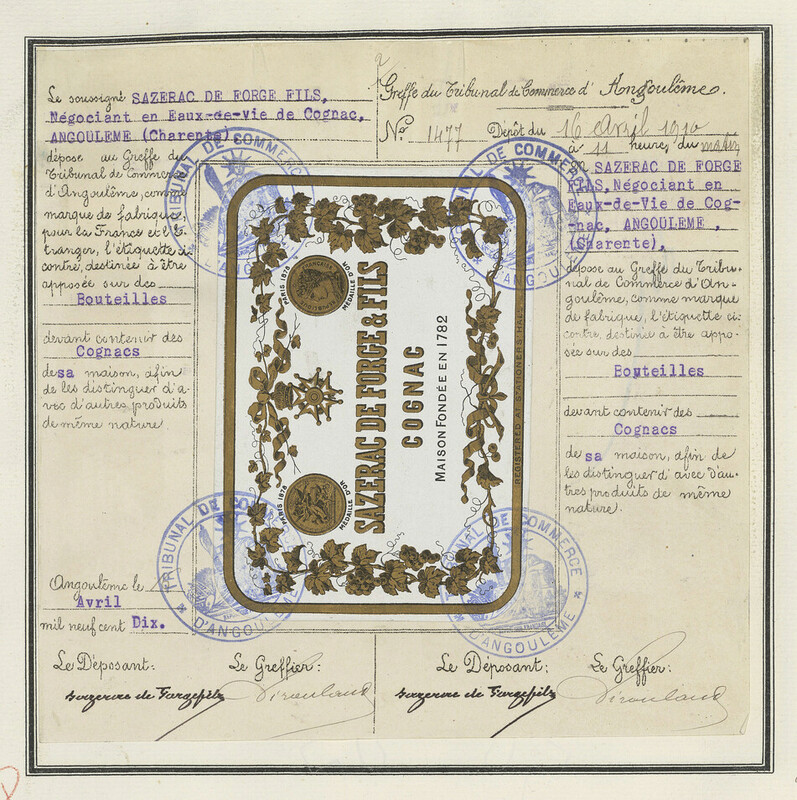 Le soussigné SAZERAC DE FORGE FILS,
Négociant en Eaux-de-Vie de Cognac,
ANGOULEME (Charente)
dépose au Greffe du
Tribunal de Commerce
d'Angoulême, comme
marque de fabrique,
pour la France et l'É-
tranger, l'étiquette ci-
contre, destinée à être
apposée sur des
Bouteilles
devant contenir des
Cognacs
de sa maison, afin
de les distinguer d'a-
vec d'autres produits
de même nature
Angoulême le
Avril
mil neuf cent Dix.
Le Déposant:
Le Greffier:
Sazerac de Forge fils
Greffe du Tribunal de Commerce d'Angoulême.
No. 1477 Dépôt du 16 avril 1910
à 11 heure, du matin
SAZERAC DE FORGE
FILS, Négociant en
Eaux-de-Vie de Cog-
-nac, ANGOULEME,
(Charente),
dépose au Greffe du Tribu-
nal de Commerce d'An-
goulême, comme marque
de fabrique, l'étiquette ci-
contre, destinée à être appo-
sée sur des
Bouteilles
devant contenir des
Cognacs
de sa maison, afin de
les distinguer d'avec d'au-
tres produits de même
nature.
Le Déposant:
Le Greffier:
Sazerac de Forge fils
PARIS 1878
MÉDAILLE D'OR
PARIS 1878
MÉDAILLE D'OR
SAZERAC DE FORGE & FILS
COGNAC
MAISON FONDÉE EN 1782
REGISTERED AT STATIONERS HALL
TRIBUNAL DE COMMERCE
D'ANGOULÊME
TRIBUNAL DE COMMERCE
D'ANGOULÊME
TRIBUNAL DE COMMERCE
D'ANGOULÊME
TRIBUNAL DE COMMERCE
D'ANGOULÊME